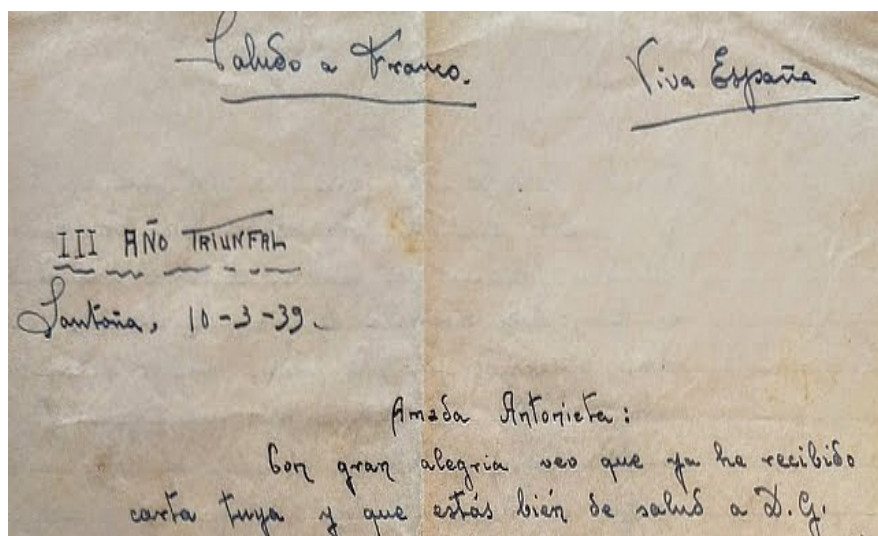 Saludo a Franco.
Viva España
III AÑO TRIUNFAL
Santoña, 10-3-39.
Amada Antonieta:
Con gran alegria veo que ya he recibido
carta tuya y que estás bién de salud a D.G.